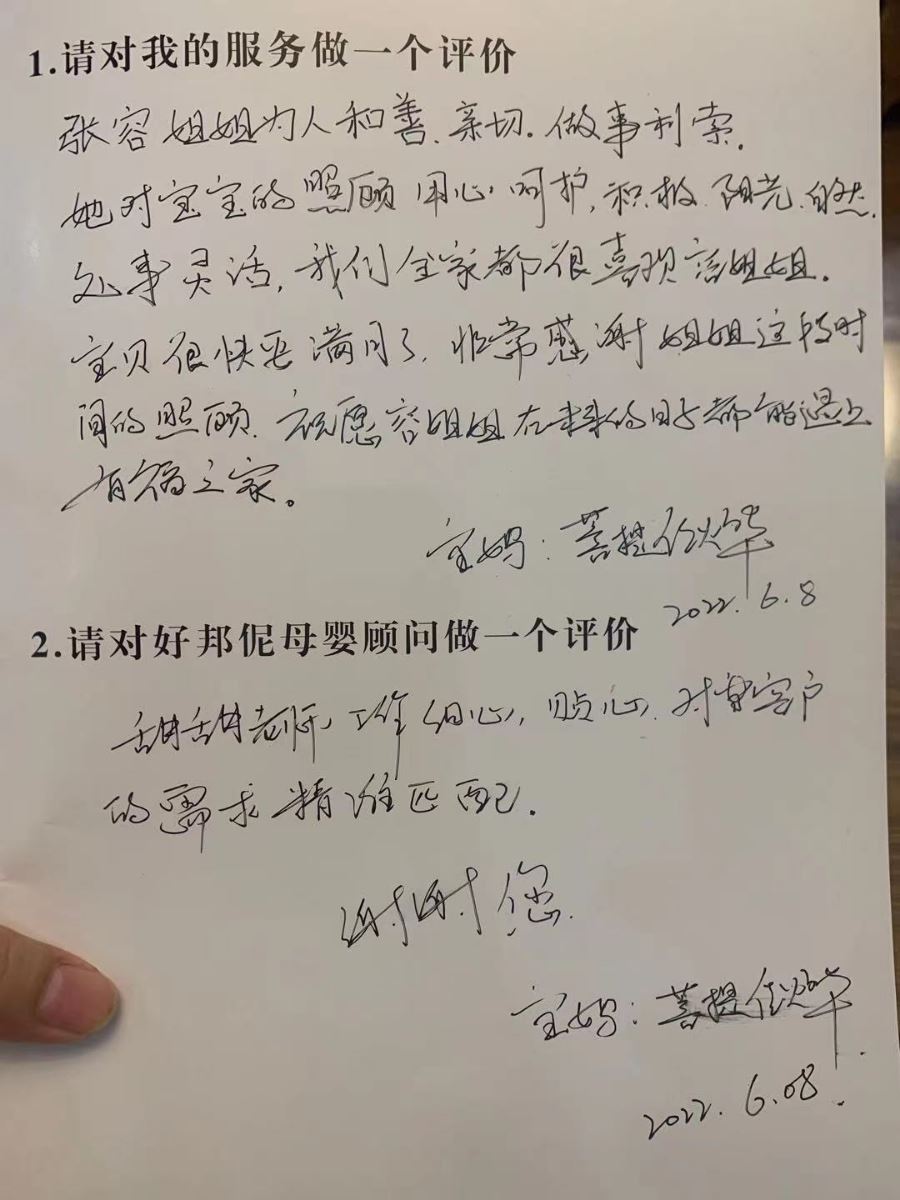 1.请对我的服务做一个评价
张容姐姐为人和善、亲切.做事利索.
她对宝宝的照顾用心呵护,积极、阳光、自然.
处事灵活,我们全家都很喜欢容姐姐.
宝贝很快要满月了,非常感谢姐姐这段时
间的照顾.祝愿容姐姐在未来的日子都能遇上
有福之家。
宝妈:菩提
2022.6.8
2.请对好邦伲母婴顾问做一个评价
甜甜老师,工作细心,贴心.对客户
的需求精准匹配.
谢谢您.
宝妈:菩提
2022.6.08.